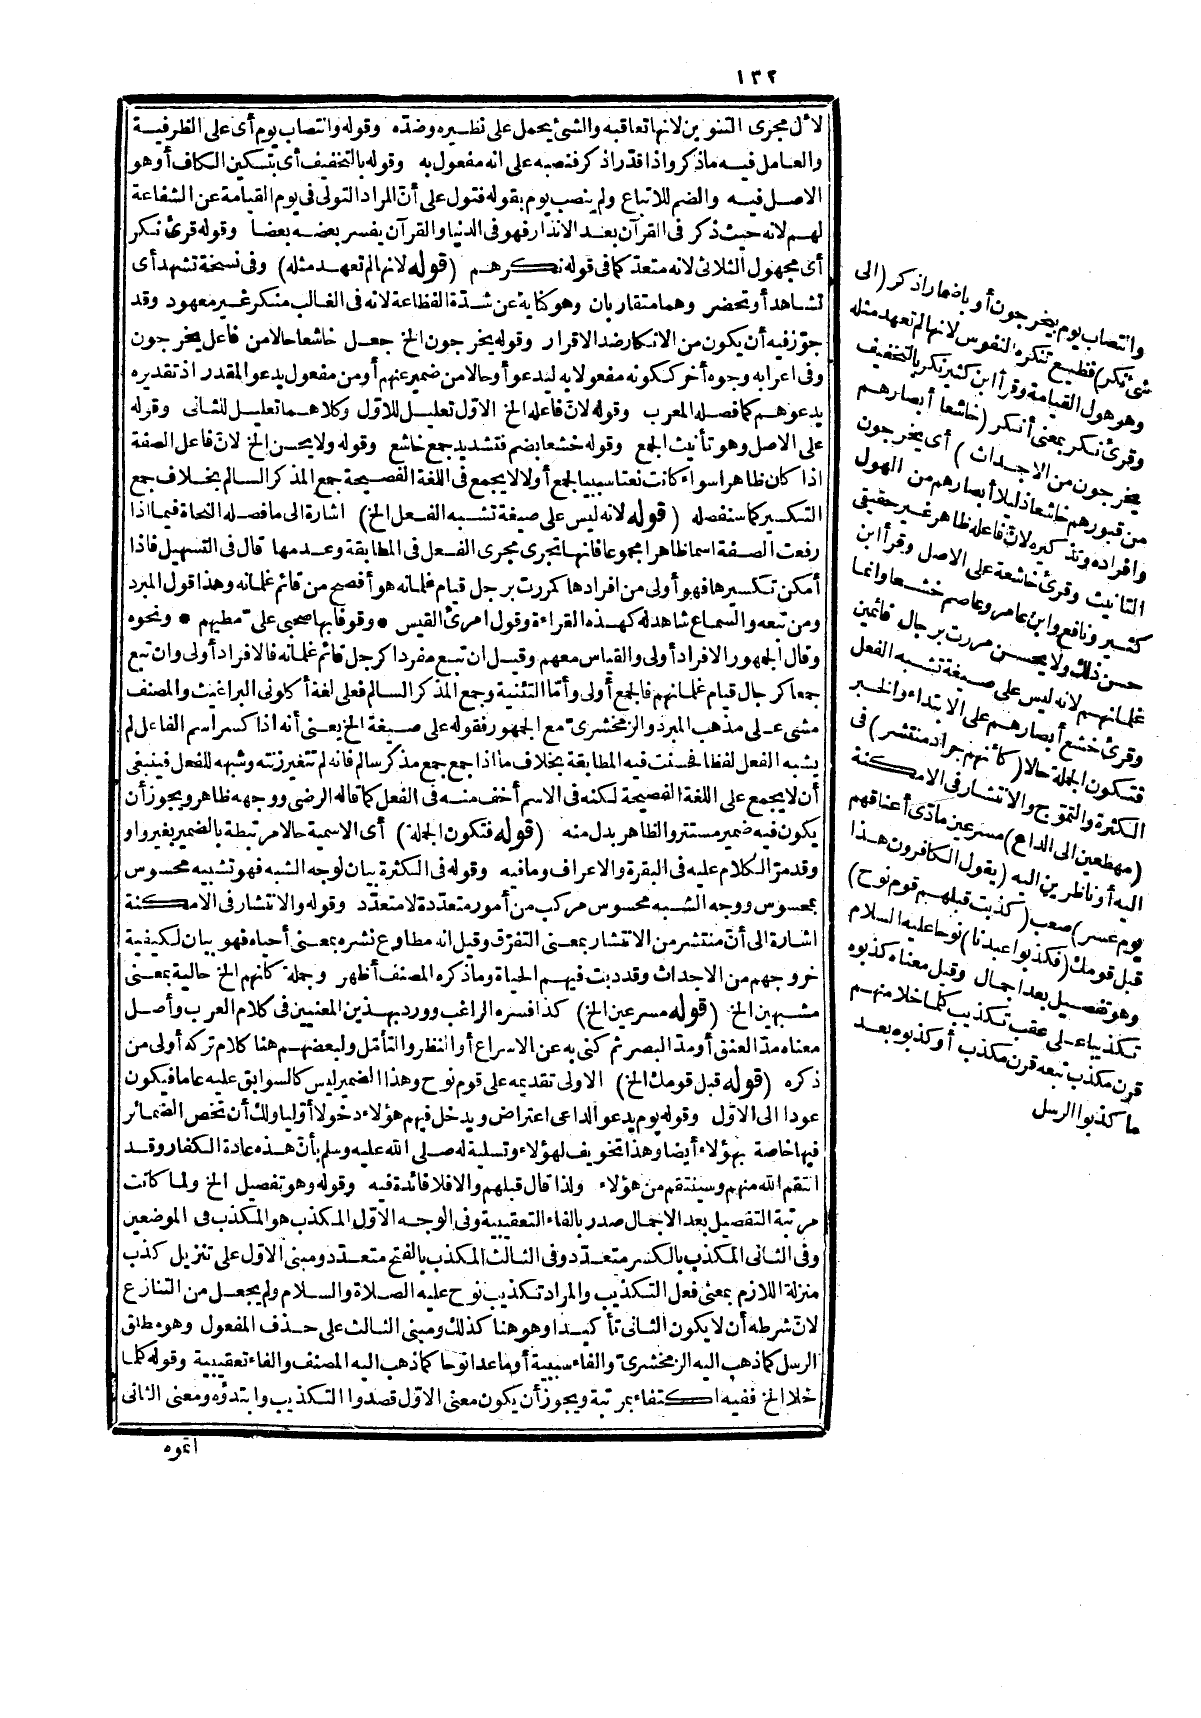 ١٢٢
لا أل مجرى التنوين لانها تعاقبه والشئ يحمل على نظيره وضده وقوله وانتصاب يوم أى على الظرفية
والعامل فيه ما ذكر واذا قدر اذكر فنصبه على انه مفعول به وقوله بالتخفيف أى بتسكين الكاف أو هو
الاصل فيه والضم للاتباع ولم ينصب يوم بقوله فتول على أنّ المراد التولى فى يوم القيامة عن الشفاعة
لهم لانه حيث ذكر فى القرآن بعد الانذار فهو فى الدنيا والقرآن يفسر بعضه بعضا وقوله قرئ نكر
أى مجهول الثلاثى لانه متعدّ كما فى قوله نكرهم (قوله لانها لم تعهد مثله) وفى نسخة تشهد أى
تشاهد أو تحضر وهما متقاربان وهو كناية عن شدّة الفظاعة لانه فى الغالب منكر غير معهود وقد
جوّز فيه أن يكون من الانكار ضد الاقرار وقوله يخرجون الخ جعل خاشعا حالا من فاعل يخرجون
وفى اعرابه وجوه أخر ككونه مفعولا به ليدعو أو حالا من ضمير عنهم أو من مفعول يدعو المقدر اذ تقديره
يدعوهم كما فصله المعرب وقوله لانّ فاعله الخ الاوّل تعليل للاوّل وكلاهما تعليل للثانى وقوله
على الاصل وهو تأنيث الجمع وقوله خشعا بضم فتشديد جمع خاشع وقوله ولا يحسن الخ لانّ فاعل الصفة
اذا كان ظاهرا سواء كانت نعتا سببيا لجمع أولا لا يجمع فى اللغة الفصيحة جمع المذكر السالم بخلاف جمع
التكسير كما ستفصله (قوله لانه ليس على صيغة تشبه الفعل الخ) اشارة الى ما فصله النحاة فيما اذا
رفعت الصفة اسما ظاهرا مجموعا فانها تجرى مجرى الفعل فى المطابقة وعدمها قال فى التسهيل فاذا
أمكن تكسيرها فهو أولى من افرادها كمررت برجل قيام غلمانه هو أفصح من قائم غلمانه وهذا قول المبرد
ومن تبعه والسماع شاهد له كهذه القراءة وقول امرئ القيس * وقوفا بها صحبى علىّ مطيهم * ونحوه
وقال الجمهور الافراد أولى والقياس معهم وقيل ان تبع مفردا كرجل قائم غلمانه فالافراد أولى وان تبع
جمعا كرجال قيام غلمانهم فالجمع أولى وأمّا التثنية وجمع المذكر السالم فعلى لغة أكلونى البراغيث والمصنف
مشى على مذهب المبرد والزمخشرىّ مع الجمهور فقوله على صيغة الخ يعنى أنه اذا كسر اسم الفاعل لم
يشبه الفعل لفظا فحسنت فيه المطابقة بخلاف ما اذا جمع جمع مذكر سالم فانه لم تتغير زنته وشبهه للفعل فينبغى
أن لا يجمع على اللغة الفصيحة لكنه فى الاسم أخف منه فى الفعل كما قاله الرضى ووجهه ظاهر ويجوز أن
يكون فيه ضمير مستتر والظاهر بدل منه (قوله فتكون الجملة) أى الاسمية حالا مرتبطة بالضمير بغير واو
وقد مرّ الكلام عليه فى البقرة والاعراف وما فيه وقوله فى الكثرة بيان لوجه الشبه فهو تشبيه محسوس
بمحسوس ووجه الشبه محسوس مركب من أمور متعدّدة لا متعدّد وقوله والانتشار فى الامكنة
اشارة الى أنّ منتشر من الانتشار بمعنى التفرّق وقيل انه مطاوع نشره بمعنى أحياه فهو بيان لكيفية
خروجهم من الاجداث وقد دبت فيهم الحياة وما ذكره المصنف أظهر وجملة كأنهم الخ حالية بمعنى
مشبهين الخ (قوله مسرعين الخ) كذا فسره الراغب وورد بهذين المعنيين فى كلام العرب وأصل
معناه مدّ العنق أو مدّ البصر ثم كنى به عن الاسراع أو النظر والتأمّل ولبعضهم هنا كلام تركه أولى من
ذكره (قوله قبل قومك الخ) الاولى تقديمه على قوم نوح وهذا الضمير ليس كالسوابق عليه عاما فيكون
عودا الى الاوّل وقوله يوم يدعو الداعى اعتراض ويدخل فيهم هؤلاء دخولا أوّليا ولك أن تخص الضمائر
فيها خاصة بهؤلاء أيضا وهذا تخويف لهؤلاء وتسلية له صلى الله عليه وسلم بأنّ هذه عادة الكفار وقد
انتقم الله منهم وسينتقم من هؤلاء ولذا قال قبلهم والا فلا فائدة فيه وقوله وهو تفصيل الخ ولما كانت
مرتبة التفصيل بعد الاجمال صدر بالفاء التعقيبية وفى الوجه الاوّل المكذب هو المكذب فى الموضعين
وفى الثانى المكذب بالكسر متعدّد وفى الثالث المكذب بالفتح متعدّد ومبنى الاوّل على تنزيل كذب
منزلة اللازم بمعنى فعل التكذيب والمراد تكذيب نوح عليه الصلاة والسلام ولم يجعل من التنازع
لانّ شرطه أن لا يكون الثانى تأكيدا وهو هنا كذلك ومبنى الثالث على حذف المفعول وهو مطلق
الرسل كما ذهب اليه الزمخشرىّ والفاء سببية أو ما عدا نوحا كما ذهب اليه المصنف والفاء تعقيبية وقوله كلما
خلا الخ ففيه اكتفاء بمرتبة ويجوز أن يكون معنى الاوّل قصدوا التكذيب وابتدؤه ومعنى الثانى
اتموه
وانتصاب يوم بيخرجون أو باضمار اذكر (الى
شئ نكر) فظيع تنكره النفوس لانها لم تعهد مثله
وهو هول القيامة وقرأ ابن كثير نكر بالتخفيف
وقرئ نكر بمعنى أنكر (خاشعا أبصارهم
يخرجون من الاجداث) أى يخرجون
من قبورهم خاشعا ذليلا أبصارهم من الهول
وافراده وتذكيره لانّ فاعله ظاهر غير حقيقى
التانيث وقرئ خاشعة على الاصل وقرأ ابن
كثير ونافع وابن عامر وعاصم خشعا وانما
حسن ذلك ولا يحسن مررت برجال قائمين
غلمانهم لانه ليس على صيغة تشبه الفعل
وقرئ خشع أبصارهم على الابتداء والخبر
فتكون الجملة حالا (كأنهم جراد منتشر) فى
الكثرة والتموّج والانتشار فى الامكنة
(مهطعين الى الداع) مسرعين مادّى أعناقهم
اليه أو ناظرين اليه (يقول الكافرون هذا
يوم عسر) صعب (كذبت قبلهم قوم نوح)
قبل قومك (فكذبوا عبدنا) نوحا عليه السلام
وهو تفصيل بعد اجمال وقيل معناه كذبوه
تكذيبا على عقب تكذيب كلما خلا منهم
قرن مكذب تبعه قرن مكذب أو كذبوه بعد
ما كذبوا الرسل